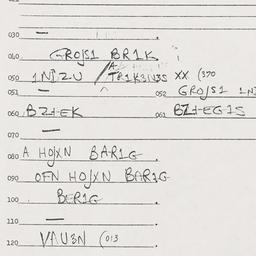 030 —
010 GROJS1 BR1K
050 1N1ZU / TR1K3IV3S XX (370
051 — 052 GROJS1 1N
060 BZHEK 061 BZHEG1S
070 —
080 A HOJXN BAR1G
090 OFN HOJXN BAR1G
100 BER1G
110 —
120 VAU3N (013